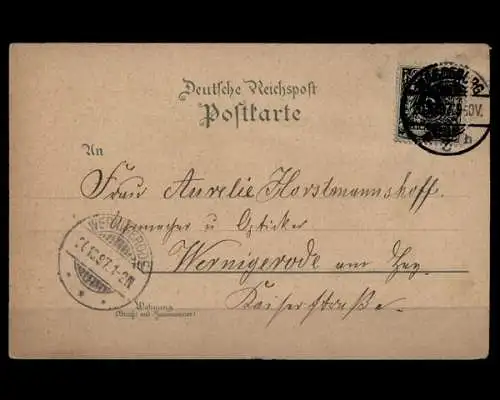 Deutsche Reichspost
Postkarte
An
Frau Aurelie Horstmannshoff.
Uhrmacher u Optiker
Wernigerode am Hrz.
Kaiserstraße.
Wohnung
(Straße und Hausnummer)
WERNIGERODE
97.1-2N